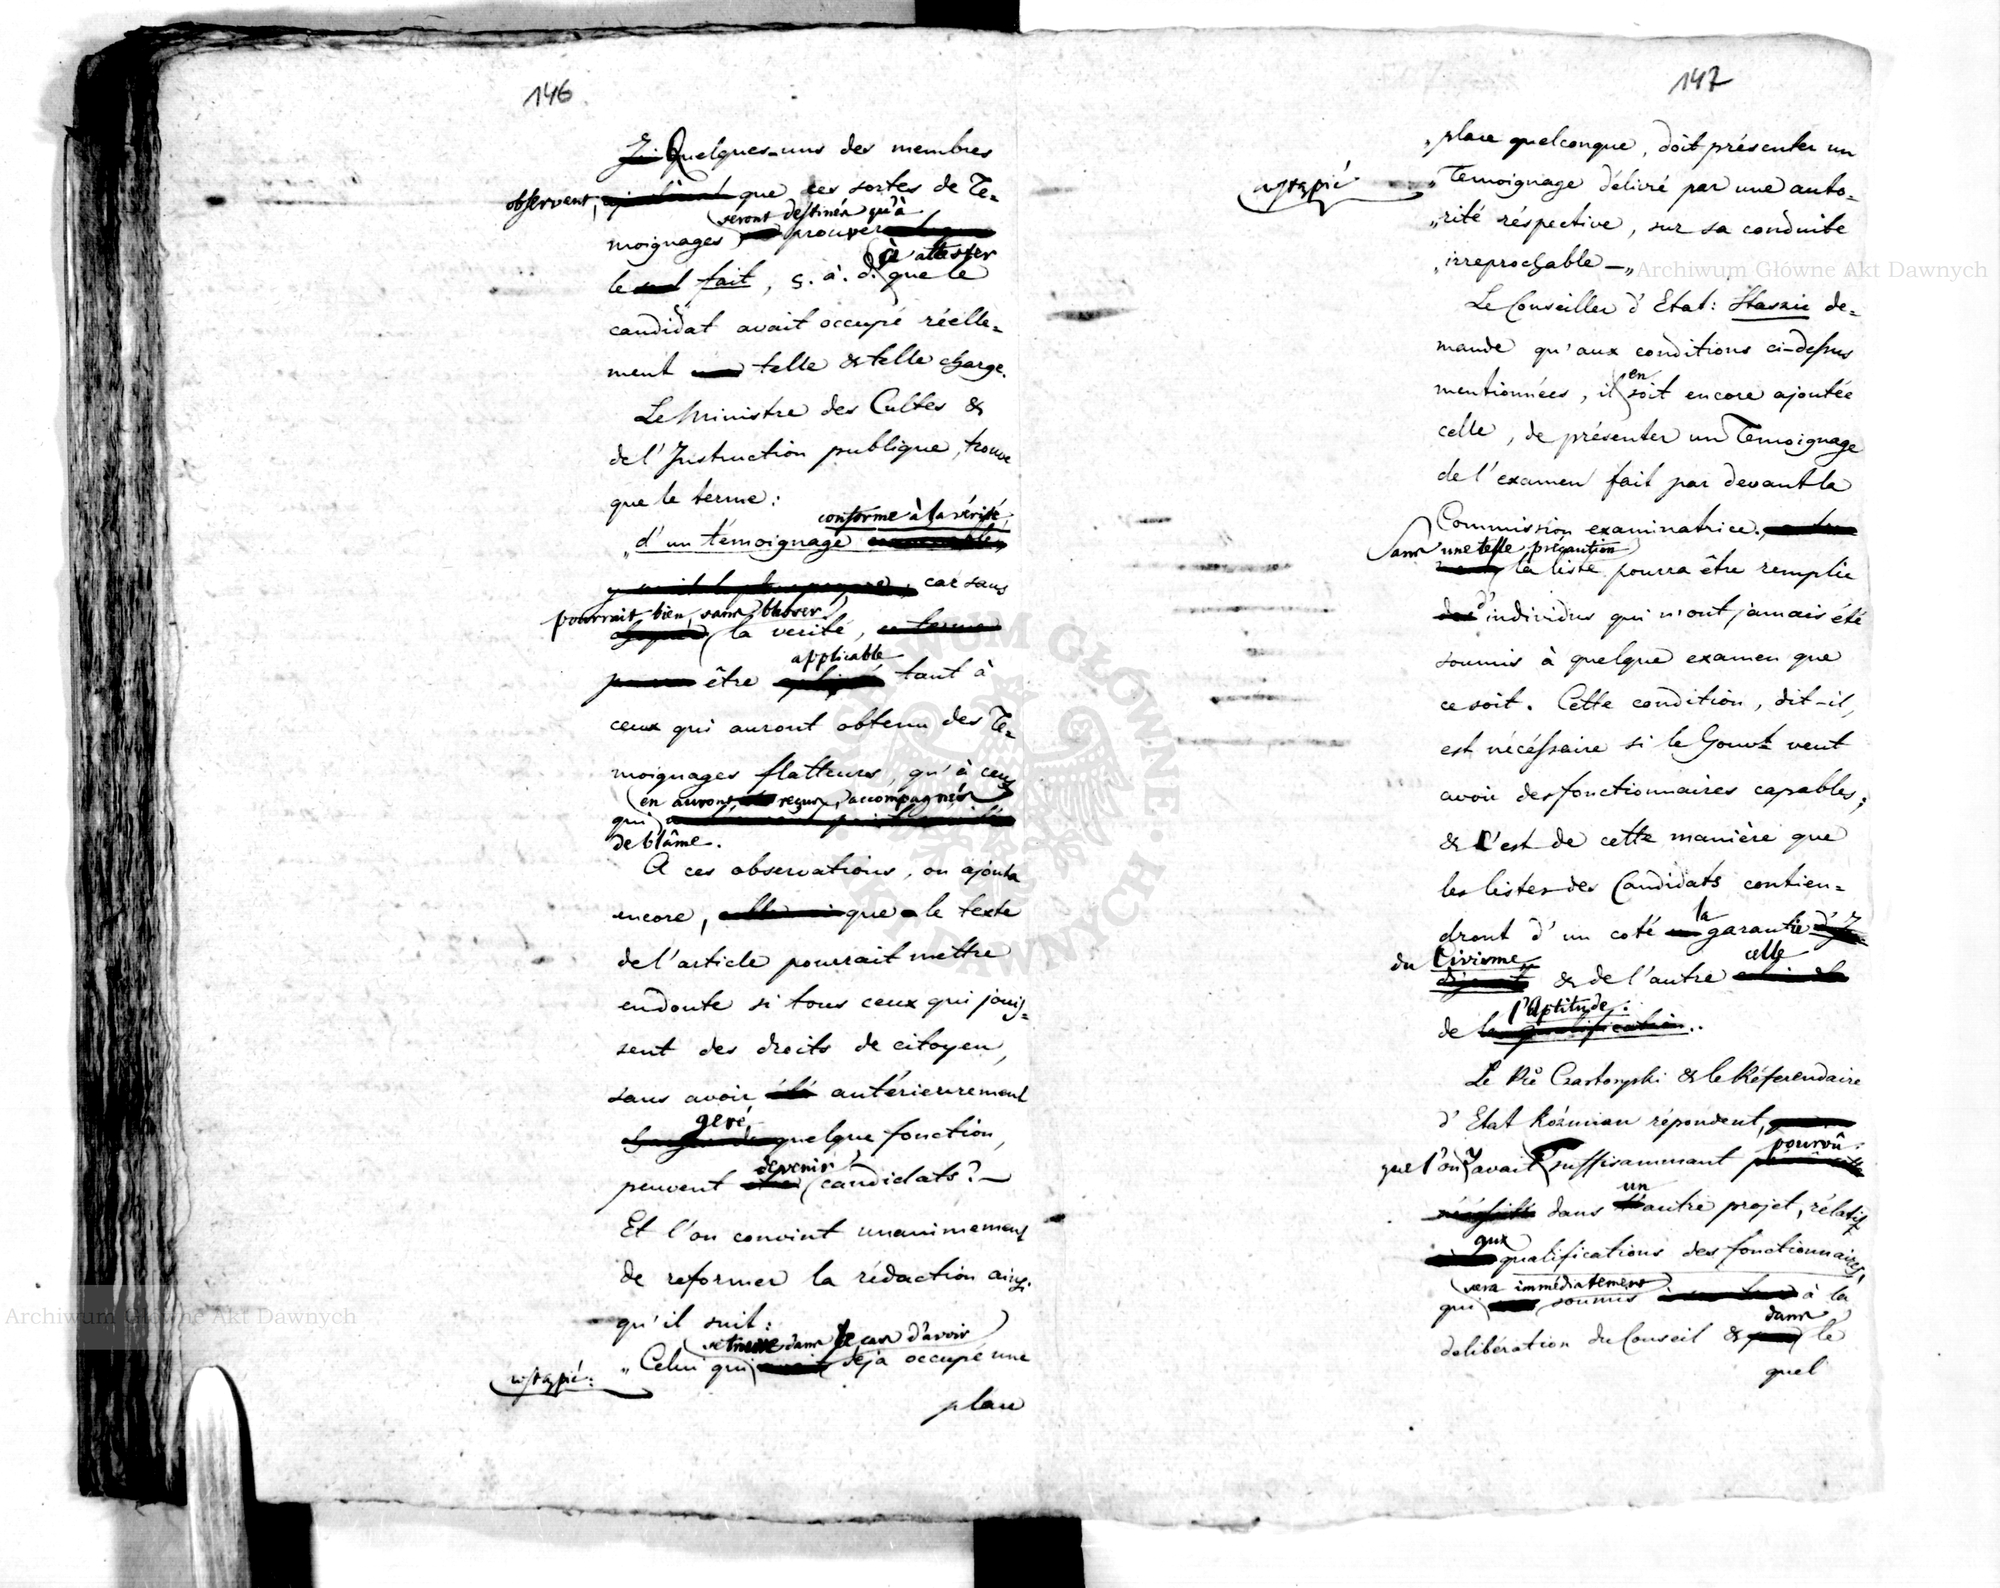 146
Quelques-uns des membres
observent, que ces sortes de Te=
seront destinés qu'à
moignages prouver
à attester
le fait, c. à. d. que le
candidat avait occupé réelle=
ment telle & telle charge.
Le Ministre des Cultes &
de l'Instruction publique, trouve
que le terme:
conforme à la vérité,
„d'un témoignage
car sans
pourrait bien, sans blesser
la verité,
applicable
être tant à
ceux qui auront obtenu des Te=
moignages flatteurs, qu'à ceux
en auront reçus, accompagnés
qui
de blâme.
A ces observations, on ajouta
encore, que le texte
de l'article pourrait mettre
en doute si tous ceux qui jouis=
sent des droits de citoyen,
sans avoir antérieurement
geré
quelque fonction,
devenir
peuvent candidats? —
Et l'on convint unanimement
de reformer la rédaction ainsi
qu'il suit:
se trouve dans le cas d'avoir
„Celui qui déjà occupé une
place
147
„place quelconque, doit présenter un
„Temoignage délivré par une auto=
„rité réspective, sur sa conduite
„irreprochable —„
Le Conseiller d'Etat: Staszic de=
mande qu'aux conditions ci-dessus
en
mentionnées, il soit encore ajoutée
celle, de présenter un Temoignage
de l'examen fait par devant la
Commission examinatrice.
Sans une telle précaution
la liste pourra être remplie
d'individus qui n'ont jamais été
soumis à quelque examen que
ce soit. Cette condition, dit-il,
est nécéssaire si le Gouvt veut
avoir des fonctionnaires capables;
& c'est de cette manière que
les listes des Candidats contien=
la
dront d'un coté garantie
du Civisme celle
& de l'autre
l'Aptitude.
de
Le Pce Czartoryski & le Réferendaire
d'Etat Kozmian répondent,
pourvû
que l'on y avait suffisamment
un
dans autre projet, rélatif
aux
qualifications des fonctionnaires,
sera immédiatement
qui soumis à la
dans
délibération du Conseil & le
quel
Archiwum Główne Akt Dawnych
Archiwum Główne Akt Dawnych
ARCHIWUM GŁÓWNE AKT DAWNYCH